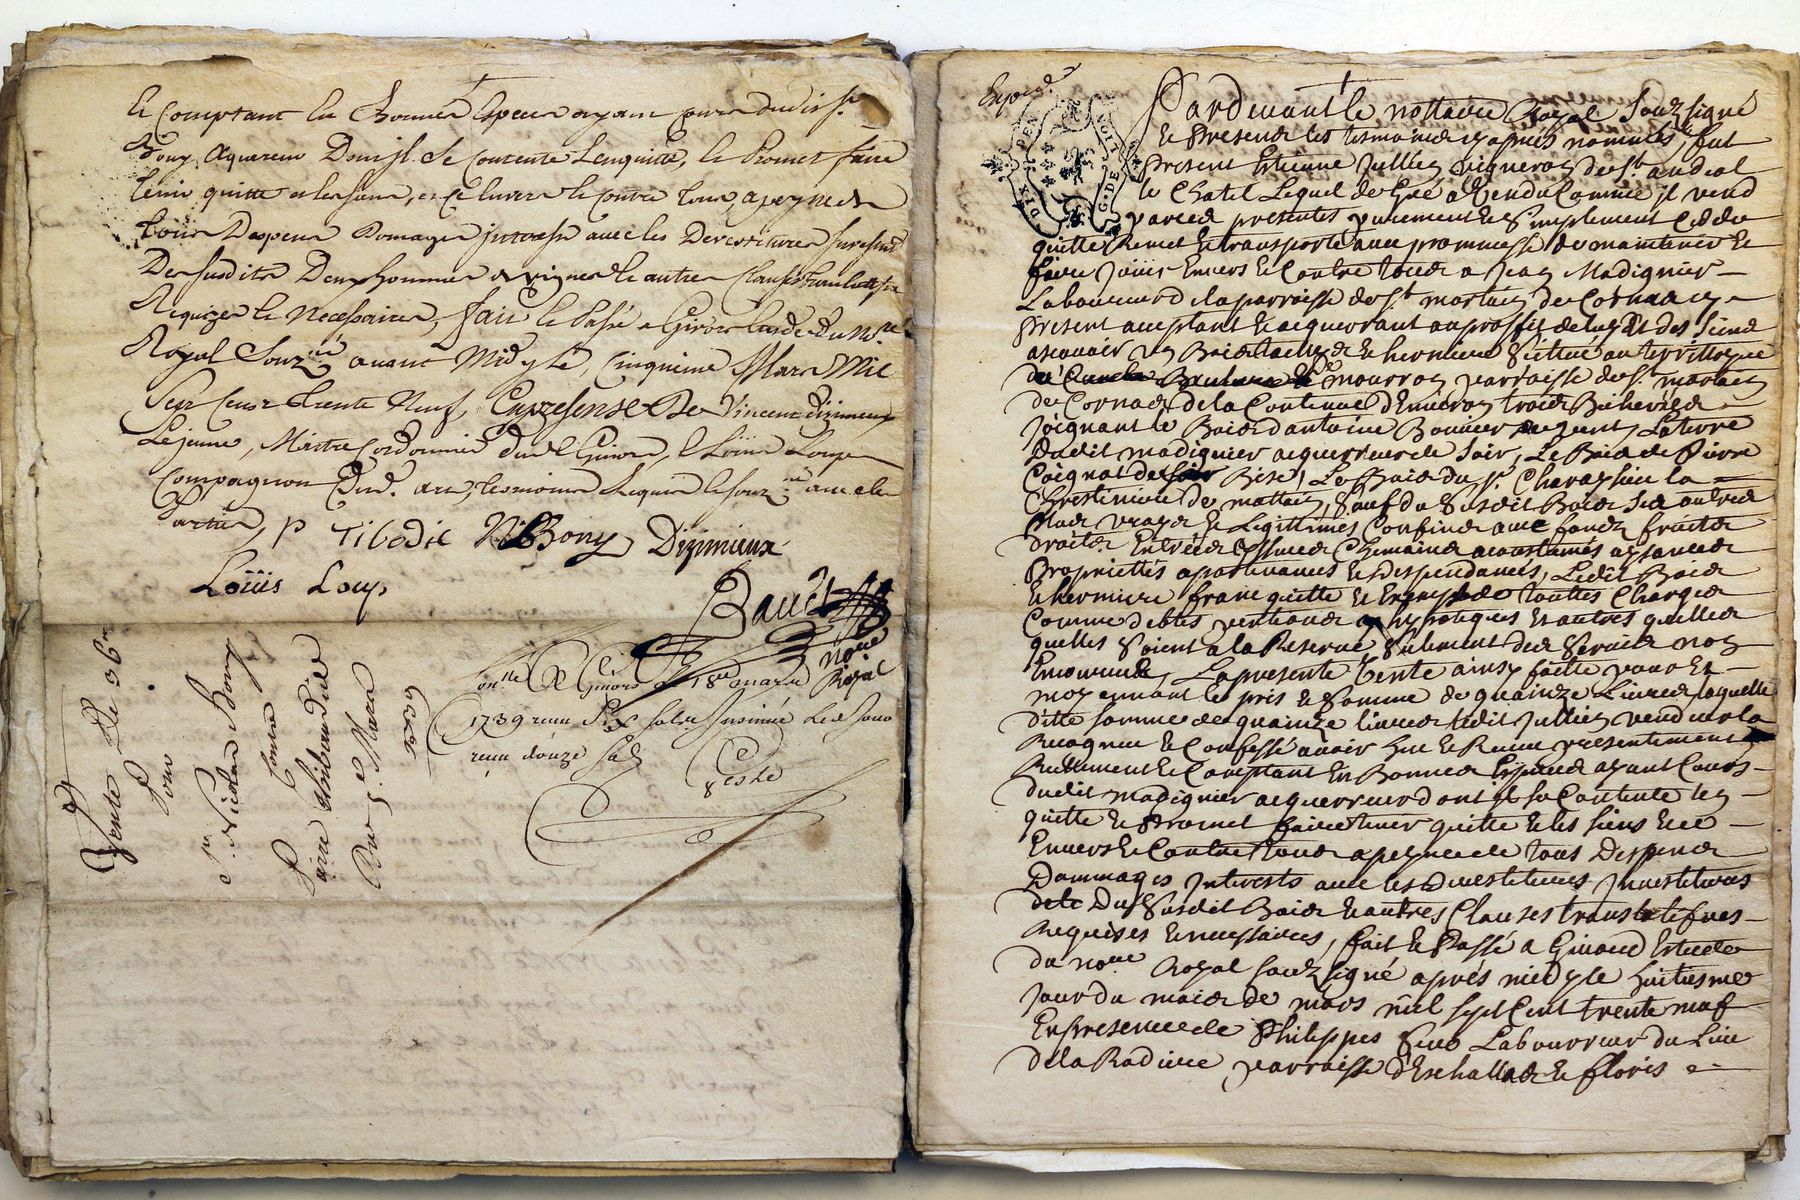 et Comptant en Bonnes Especes ayant cours dudit Sr.
Bony Aquereur Dont il se Contente Lenquitte, et Promet faire
tenir quitte et les siens, et Ce Envers et Contre tous, a peyne de
tous Despens Domages interests avec les Devestitures
Desusdits Deux hommées vigne et autres Clauses translatifves
Requizes et Necessaires, fait et Passé a Givors Etude du Nore.
Royal Souzné. avant Midy le Cinquieme Mars Mil
Sept Cent trente Neuf, En presense De Vincent Dizimieux
Lejeune, Maitre Cordonnier dud. Givors, et Loüis Loup
Compagnon Aud. art, tesmoins Requis et souzné. avec les
Parties,
P Tibodie N Bony Dizimieux
Loüis Loup
nore
Royal
Onlle A Givors Le 18e mars
1739 receu Six sols Insinué Led. Jour
receu douze sols
Vente De
Pour
Sr. Nicolas Bony
Contre
Pierre
Du 5e Mars
1739
Expedé.
DIX DEN
G. DE LION
Pardevant le nottaire Royal Souzsigné
et Presents les tesmoins cy apres nommés, fut
Present Estienne Jullien vigneron de St. andeol
le Chatel Lequel de Gré a Vendu Comme il vend
par ces presentes purement et Simplement Cede
quitte Remet et transporte avec prommesse de maintenir et
faire Jouir Envers et Contre tous a Jean Madignier
Laboureur de la parroisse de St martin de Cornas
Present acceptant et acquerrant au proffit de luy et des Siens
ascavoir un Bois taillis et hermiere Scitué au territtoire
de mourron parroisse de St. martin
de Cornas de la Contenue d'Environ trois Bicherées
Joignant le Bois d'antoine Bonnier la terre
Dudit madignier acquerreur de Soir, Le Bois de Pierre
Coignat de Bise, Le Bois du Sr. Charassieu la
de mattin, Sauf du Susdit Bois Ses autres
Plus vrays et Legittimes Confins avec fonds fruits
droits Entrées Issues Chemains acoustumés aysances
Proprietés apartenances et Despendances, Ledit Bois
et hermiere franc quitte et Exempt de touttes Charges
Comme debtes pentions ypotiques et autres quelles
quelles Soient a la Reserve Sulement des Servis non
Encourus, La presente Vente ainsy faitte pour Et
moyennant le pris et Somme de quainze Livres laquelle
ditte Somme de quainze livres ledit Jullien vendeur a
Recognu et Confessé avoir heu et Receu presentement
Reellement et Comptant En Bonnes Especes ayant Cours
dudit madignier acquerreur dont il se Contente len
quitte et Promet faire tenir quitte et les Siens et ce
Envers et Contre tous a peyne de tous Despens
Dommages Interests avec les Devestitures Investitures
Du Susdit Bois et autres Clauses translatifves
Requises et necessaires, fait et Passé a Givors Estude
du nore. Royal Souzsigné aprés midy le Huitiesme
Jour du mois de mars mil sept Cent trente neuf
En presence de Philippes Laboureur du Lieu
de la Rodiere parroisse d'Eschallas et floris